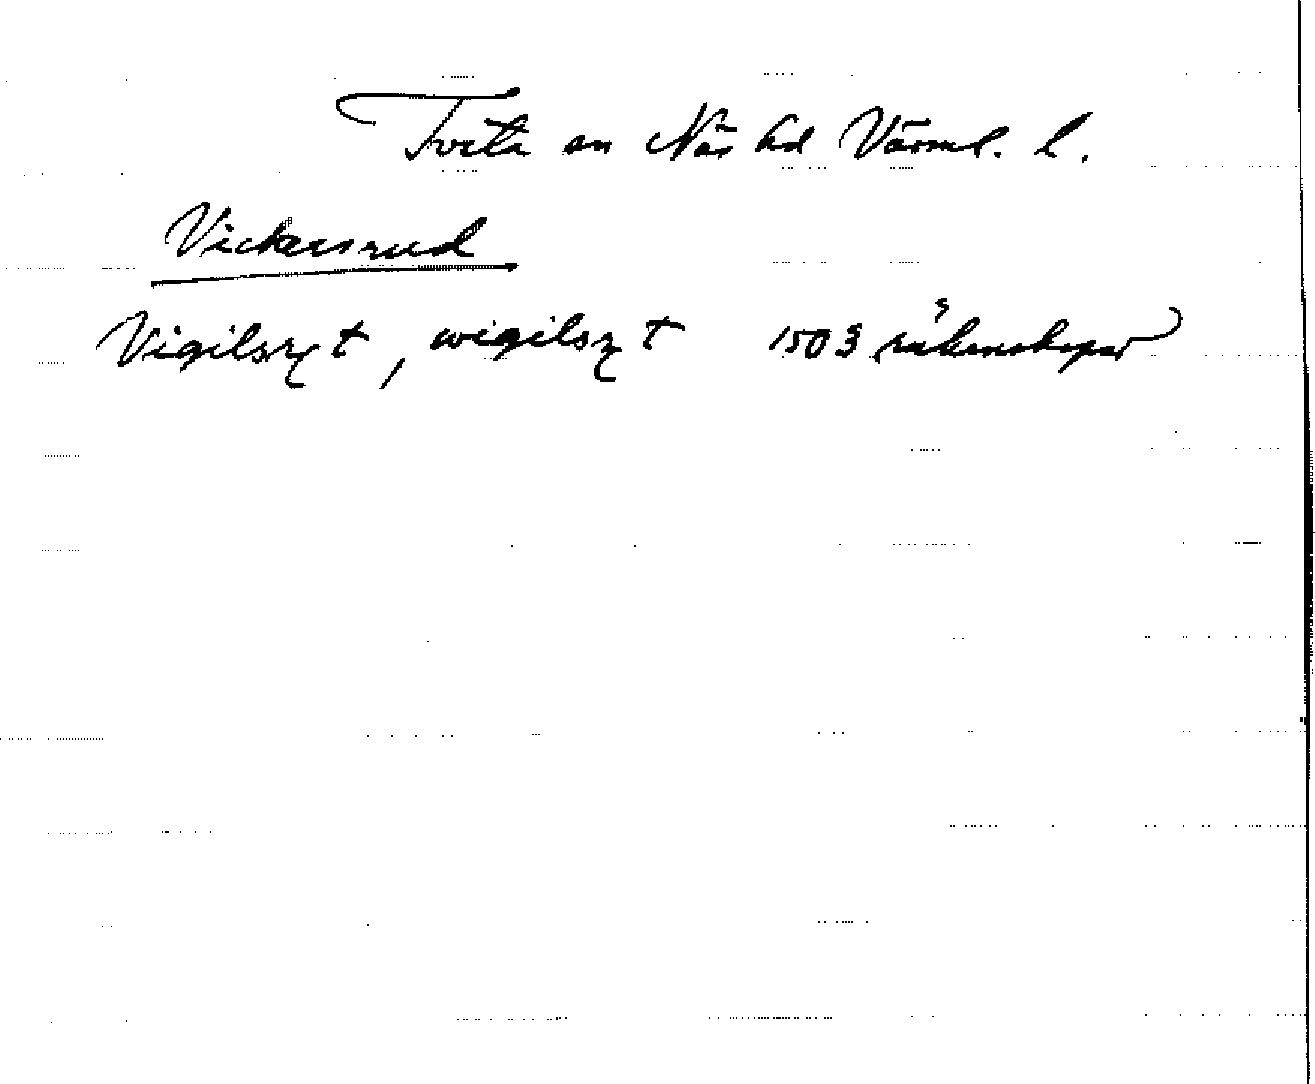 Tveta sn Näs hd Värml. l.
Vickersrud
Vigilsryt, wigilsryt 1503 räkenskaper